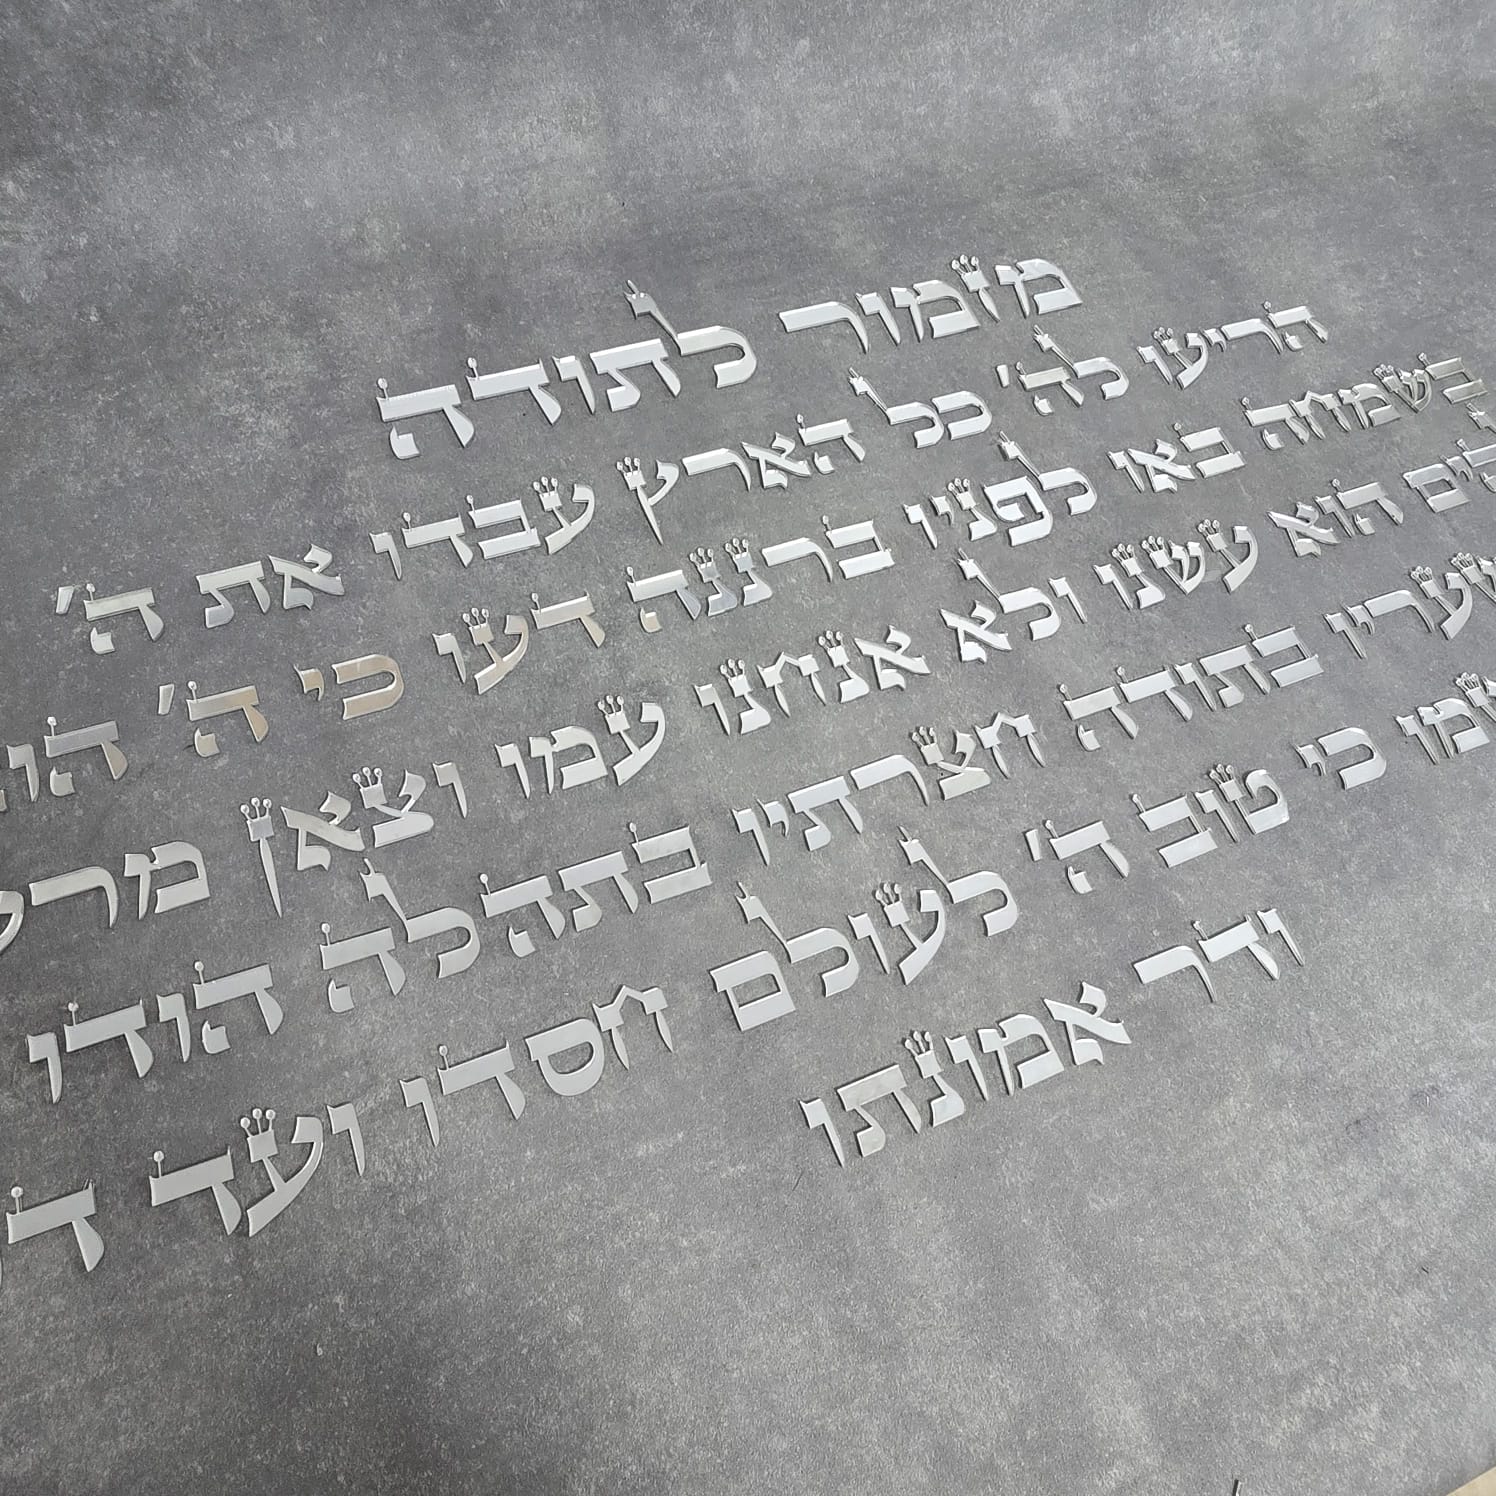 מזמור לתודה
הריעו לה' כל הארץ עבדו את ה'
בשמחה באו לפניו ברננה דעו כי ה' הו
הוא עשנו ולא אנחנו עמו וצאן
שעריו בתודה חצרתיו בתהלה הודו
כי טוב ה' לעולם חסדו ועד
ודר אמונתו